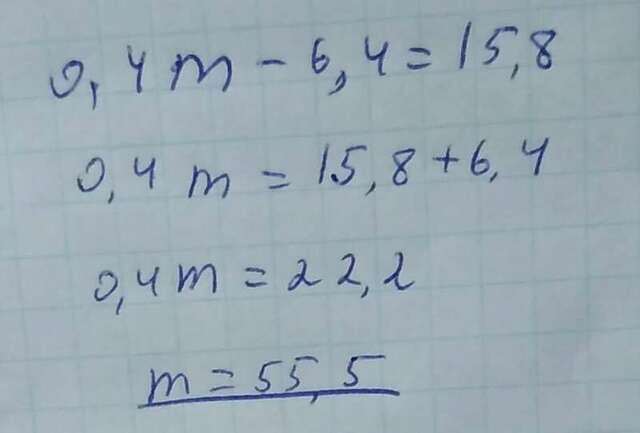 0,4m - 6,4 = 15,8
0,4m = 15,8 + 6,4
0,4m = 22,2
m = 55,5